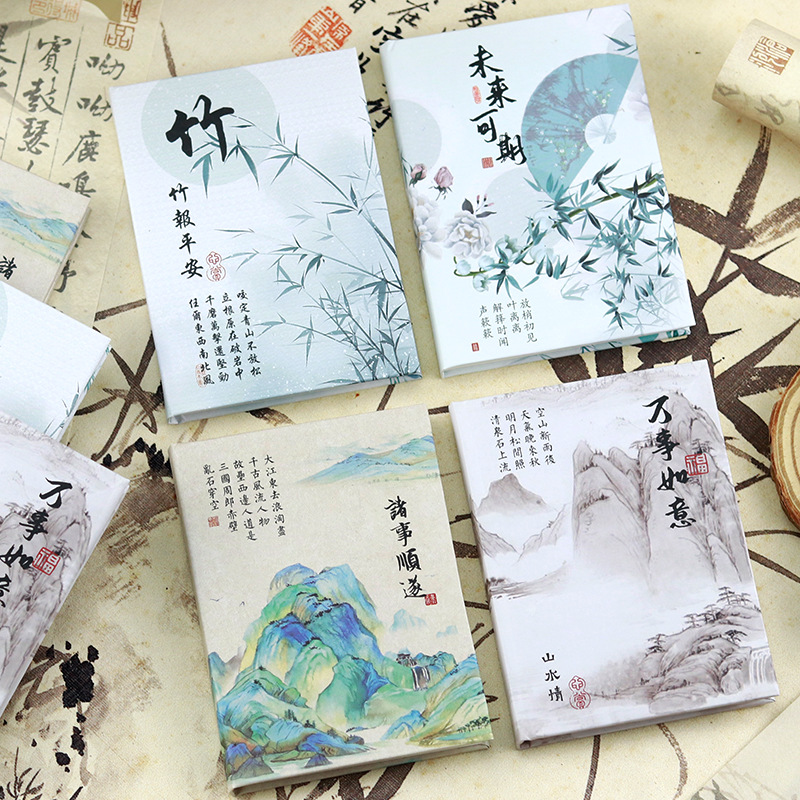 竹
竹報平安
咬定青山不放松
立根原在破岩中
千磨萬擊還堅勁
任爾東西南北風
未来可期
放梢初见
叶离离
解择时闻
声簌簌
大江東去浪淘盡
千古風流人物
故壘西邊人道是
三國周郎赤壁
亂石穿空
諸事順遂
空山新雨後
天氣晚來秋
明月松間照
清泉石上流
万事如意
福
山水情
諸
万事如意
福
呦呦鹿鳴
賓鼓瑟